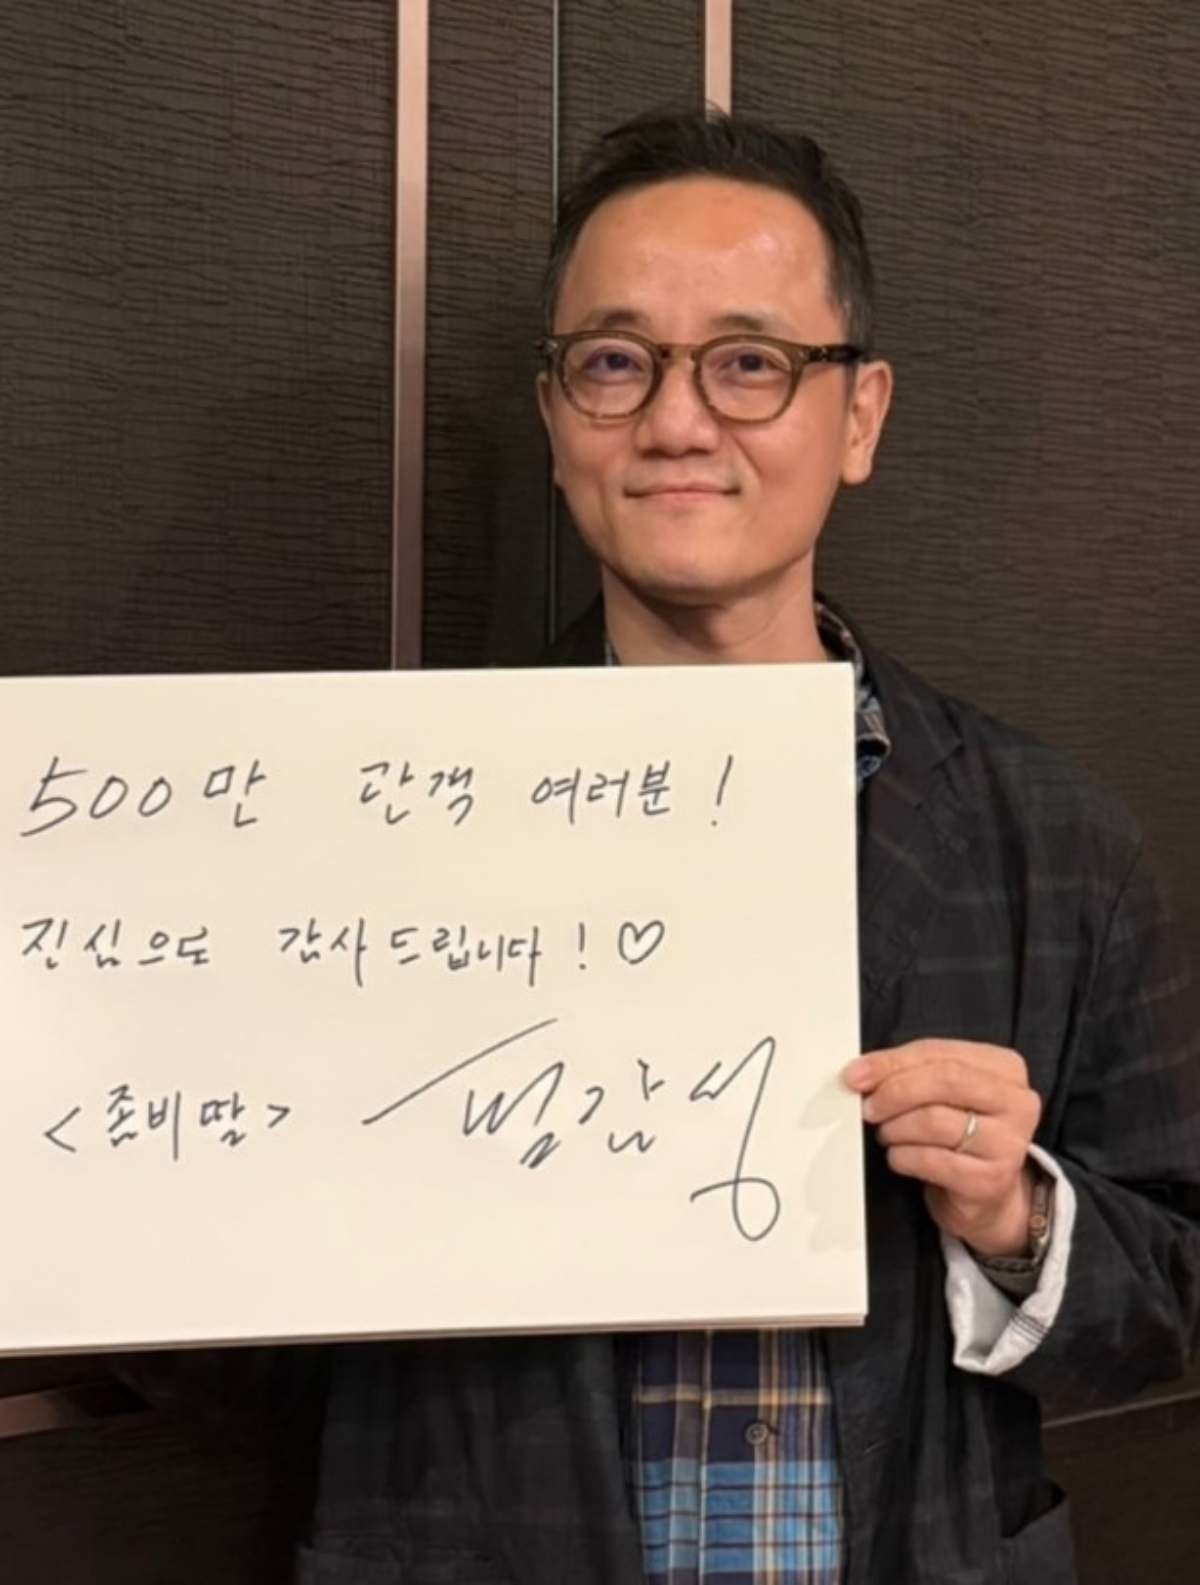 500만 관객 여러분!
진심으로 감사드립니다! ♡
<좀비딸> 필감성